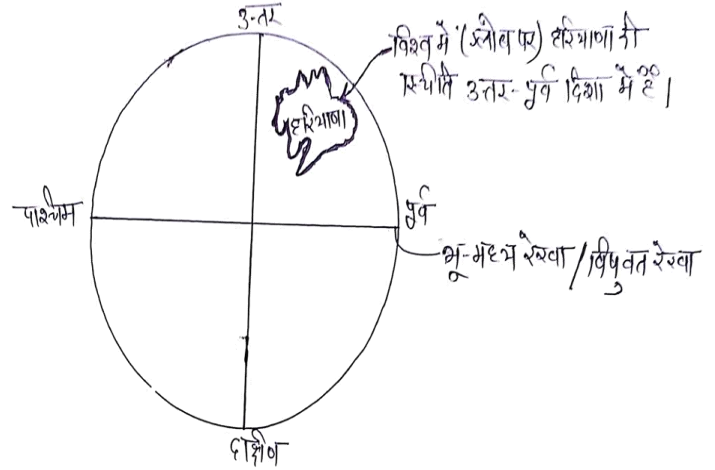 उत्तर
विश्व में (ग्लोब पर) हरियाणा की
स्थीति उत्तर-पूर्व दिशा में है।
हरियाणा
पश्चिम
पूर्व
भू-मध्य रेखा/विषुवत रेखा
दक्षिण